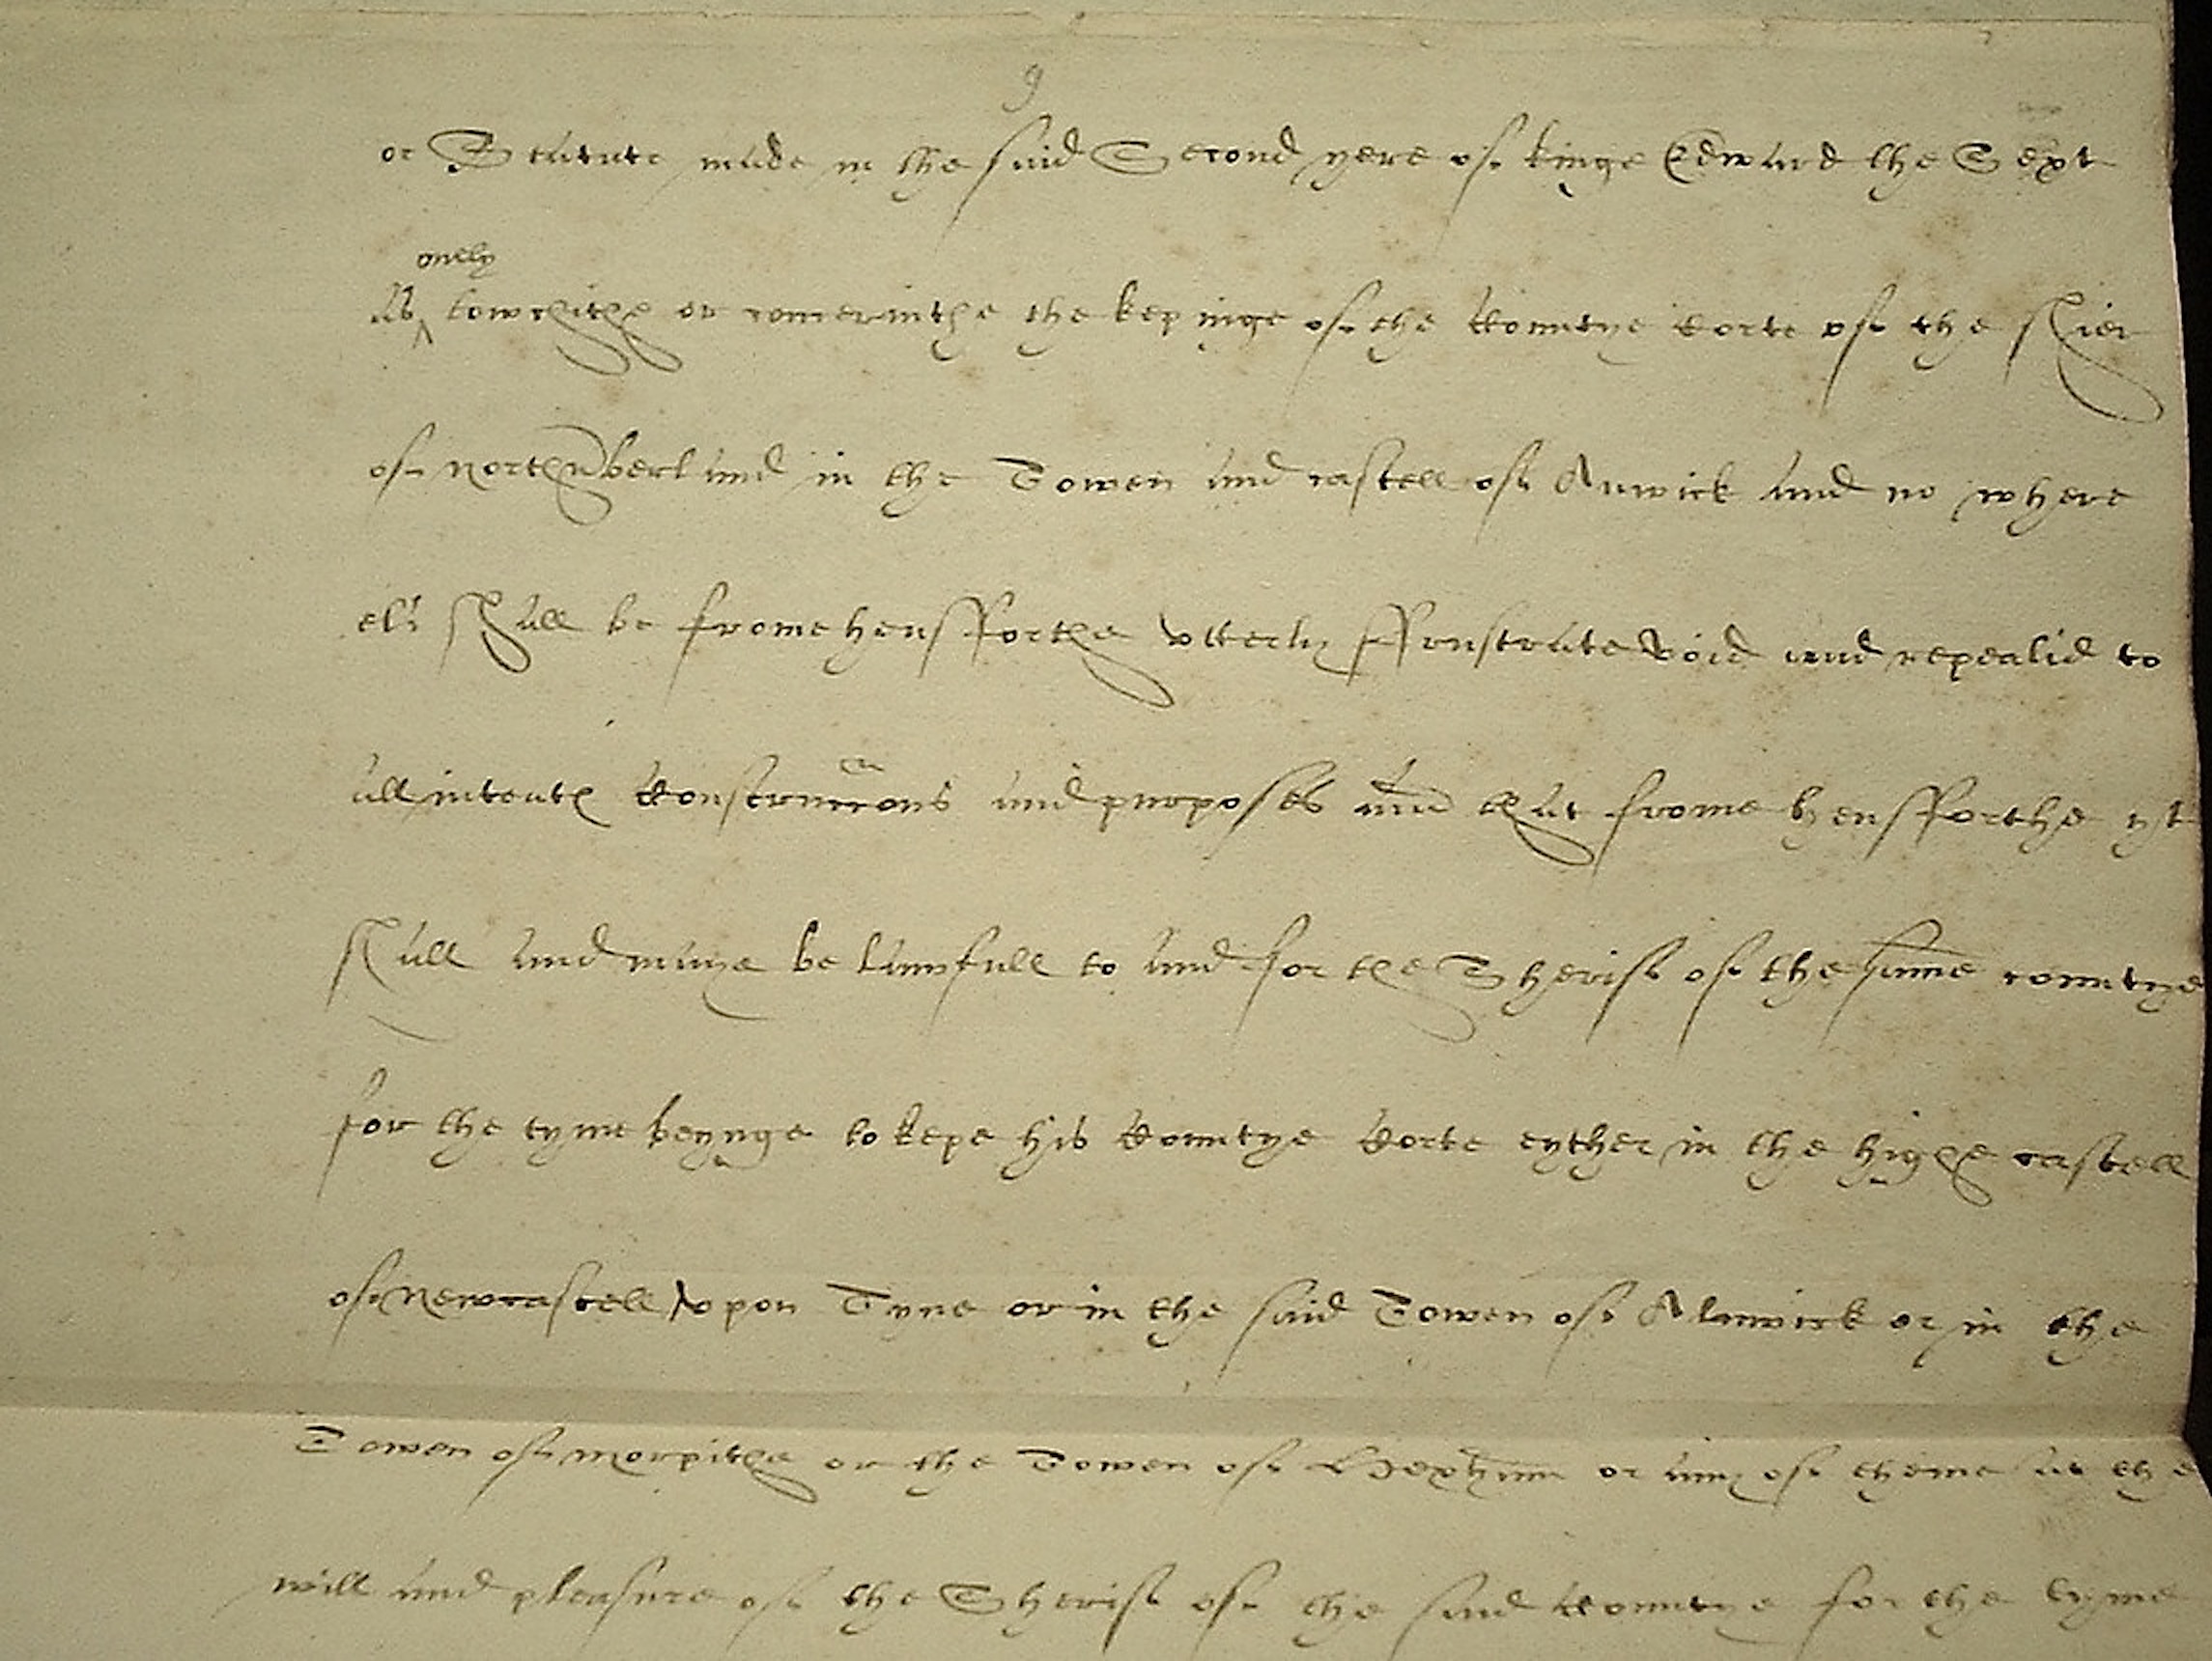 9
or Statute made in the said Second yere of kinge Edward the Sext
onely
As towchithe or concernithe the kepinge of the Countye Corte of the Shier
of northūberland in the Towen and castell of Anwick and no where
els shall be frome hensfforthe vtterly ffrustrate void and repealid to
all intents Construccons and purposes and that frome hensfforthe yt
shall and maye be lawfull to and for the Sherif of the same countye
for the tyme beynge to kepe his Countye Corte eyther in the highe castell
of Newcastell vpon Tyne or in the said Towen of Alnwick or in the
Towen of morpithe or the Towen of Hexham or any of theme at the
will and pleasure of the Sherif of the said Countye for the tyme